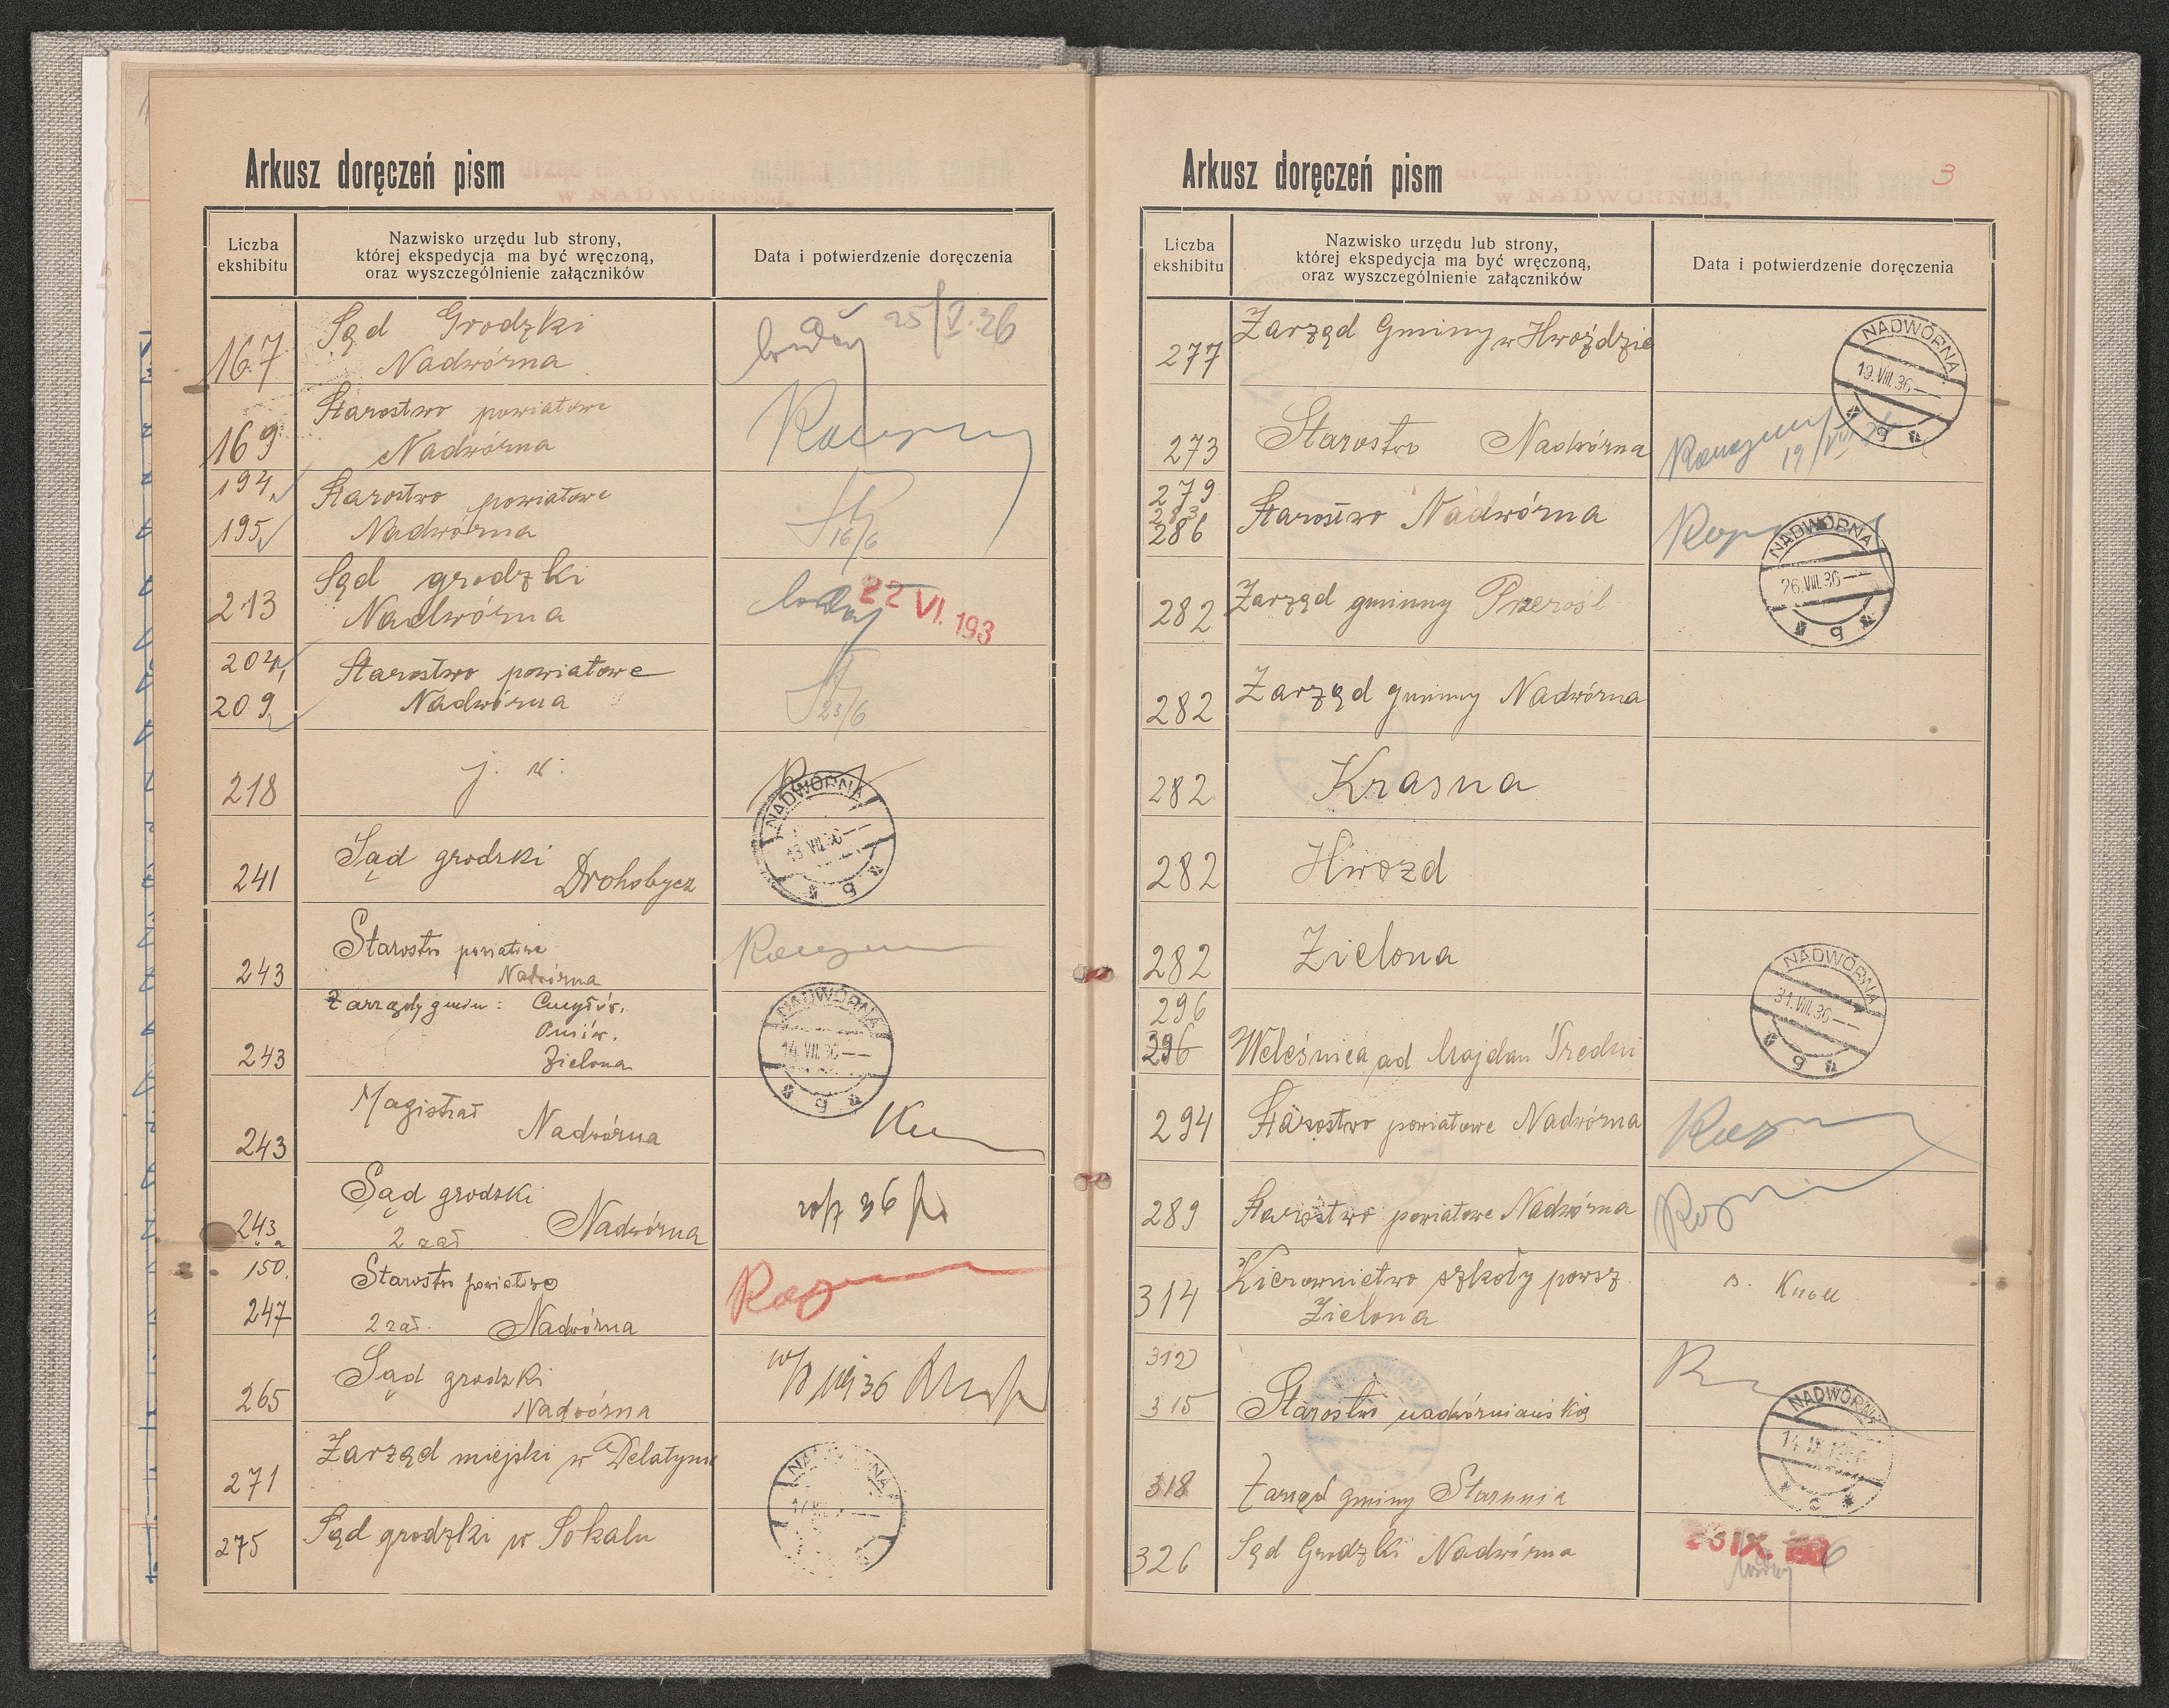 Arkusz doręczeń pism
Liczba
ekshibitu
Nazwisko urzędu lub strony,
której ekspedycja ma być wręczoną,
oraz wyszczególnienie załączników
Data i potwierdzenie doręczenia
167
Sąd Grodzki
Nadwórna
25/V.36
169
Starostwo powiatowe
Nadwórna
194,
195,
Starostwo powiatowe
Nadwórna
16/6
213
Sąd grodzki
Nadwórna
22 VI. 193
204,
209,
Starostwo powiatowe
Nadwórna
23/6
218
j. w.
NADWÓRNA
13.VII.36
241
Sąd grodzki
Drohobycz
243
Starostwo powiatowe
Nadwórna
243
Zarządy gmin:
Zielona
NADWÓRNA
14.VII.36
243
Magistrat
Nadwórna
243
Sąd grodzki
2 zał
Nadwórna
36
150.
247
Starostwo powiatowe
2 zał. Nadwórna
265
Sąd grodzki
Nadwórna
36
271
Zarząd miejski w Delatynie
275
Sąd grodzki w Sokalu
Arkusz doręczeń pism
w NADWÓRNEJ.
3
Liczba
ekshibitu
Nazwisko urzędu lub strony,
której ekspedycja ma być wręczoną,
oraz wyszczególnienie załączników
Data i potwierdzenie doręczenia
277
Zarząd Gminy w Hwoździe
NADWÓRNA
19.VIII.36
273
Starostwo Nadwórna
19/VIII
279
283
286
Starostwo Nadwórna
NADWÓRNA
26.VIII.36
282
Zarząd gminny Przerośl
282
Zarząd gminny Nadwórna
282
Krasna
282
Hwozd
282
Zielona
NADWÓRNA
31.VIII.36
296
296
Weleśnica ad Majdan Średni
294
Starostwo powiatowe Nadwórna
289
Starostwo powiatowe Nadwórna
314
Kierownictwo szkoły powsz.
Zielona
312
315
Starostwo nadwórniańskie
NADWÓRNA
14.IX.1936
318
Zarząd gminy Starunia
326
Sąd Grodzki Nadwórna